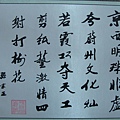 京西明珠非虚
夸蔚州文化灿
若霞巧夺天工
剪纸藝激情四
射打树花